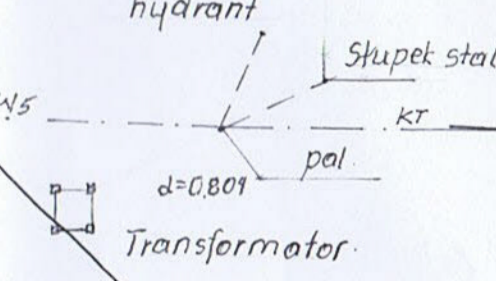 hydrant
Słupek stal
W5
KT
pal.
d=0,809
Transformator.